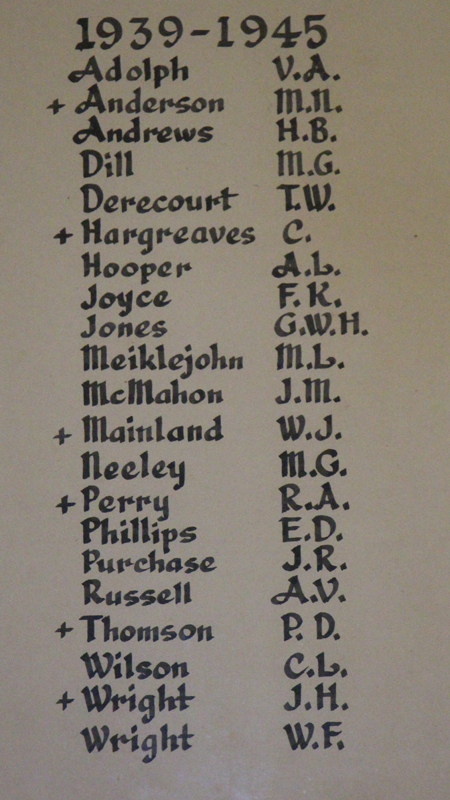 1939-1945
Adolph V.A.
+ Anderson M.N.
Andrews H.B.
Dill M.G.
Derecourt T.W.
+ Hargreaves C.
Hooper A.L.
Joyce F.K.
Jones G.W.H.
Meiklejohn M.L.
McMahon J.M.
+ Mainland W.J.
Neeley M.G.
+ Perry R.A.
Phillips E.D.
Purchase J.R.
Russell A.V.
+ Thomson P.D.
Wilson C.L.
+ Wright J.H.
Wright W.F.